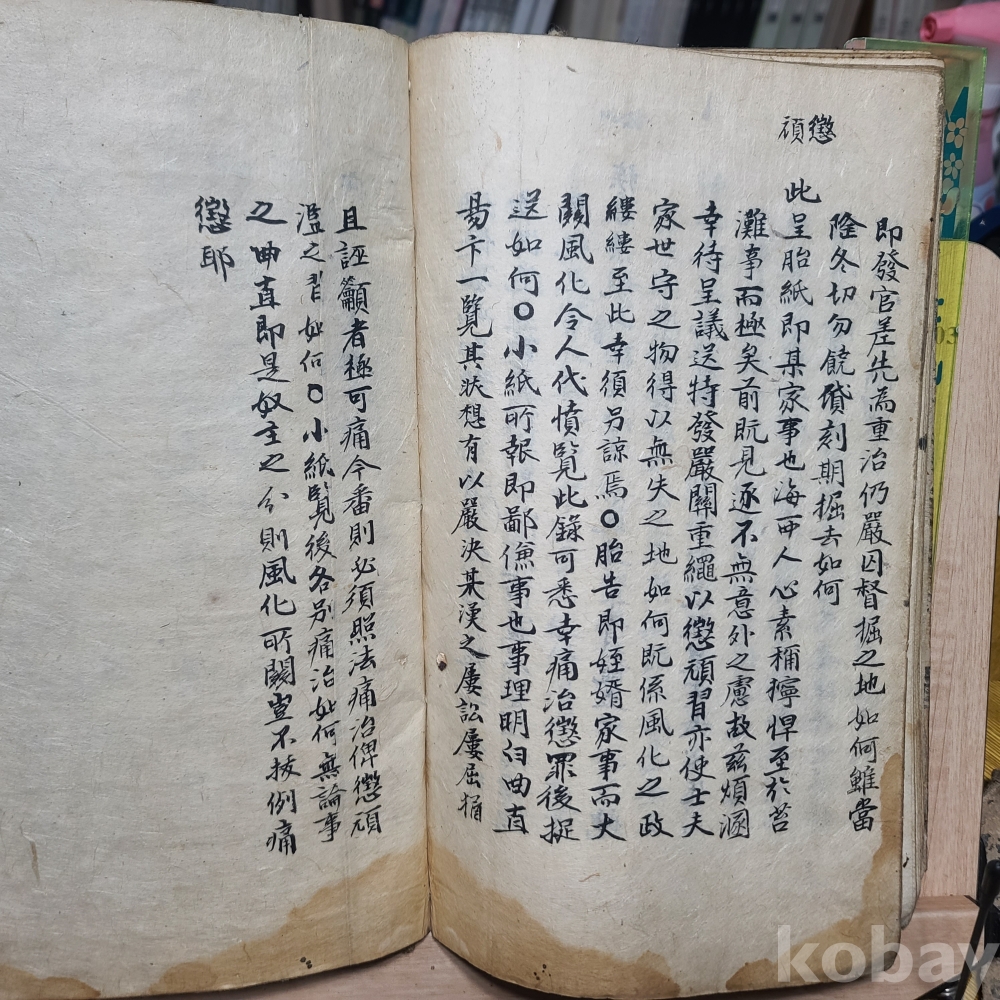 懲頑
即發官差先為重治仍嚴囚督掘之地如何雖當
隆冬切勿饒貸刻期掘去如何
此呈胎紙即某家事也海西人心素稱獰悍至於苔
灘事而極矣前既見逐不無意外之慮故玆煩溷
幸待呈議送特發嚴關重繩以懲頑習亦使士夫
家世守之物得以無失之地如何既係風化之政
縷縷至此幸須另諒焉○胎告即姪婿家事而大
關風化令人代憤覽此錄可悉幸痛治懲罪後捉
送如何○小紙所報即鄙傔事也事理明白曲直
易卞一覽其狀想有以嚴決某漢之屢訟屢屈猶
且誣籲者極可痛今番則必須照法痛治俾懲頑
濫之習如何○小紙覽後各別痛治如何無論事
之曲直即是奴主之分則風化所關豈不拔例痛
懲耶
kobay